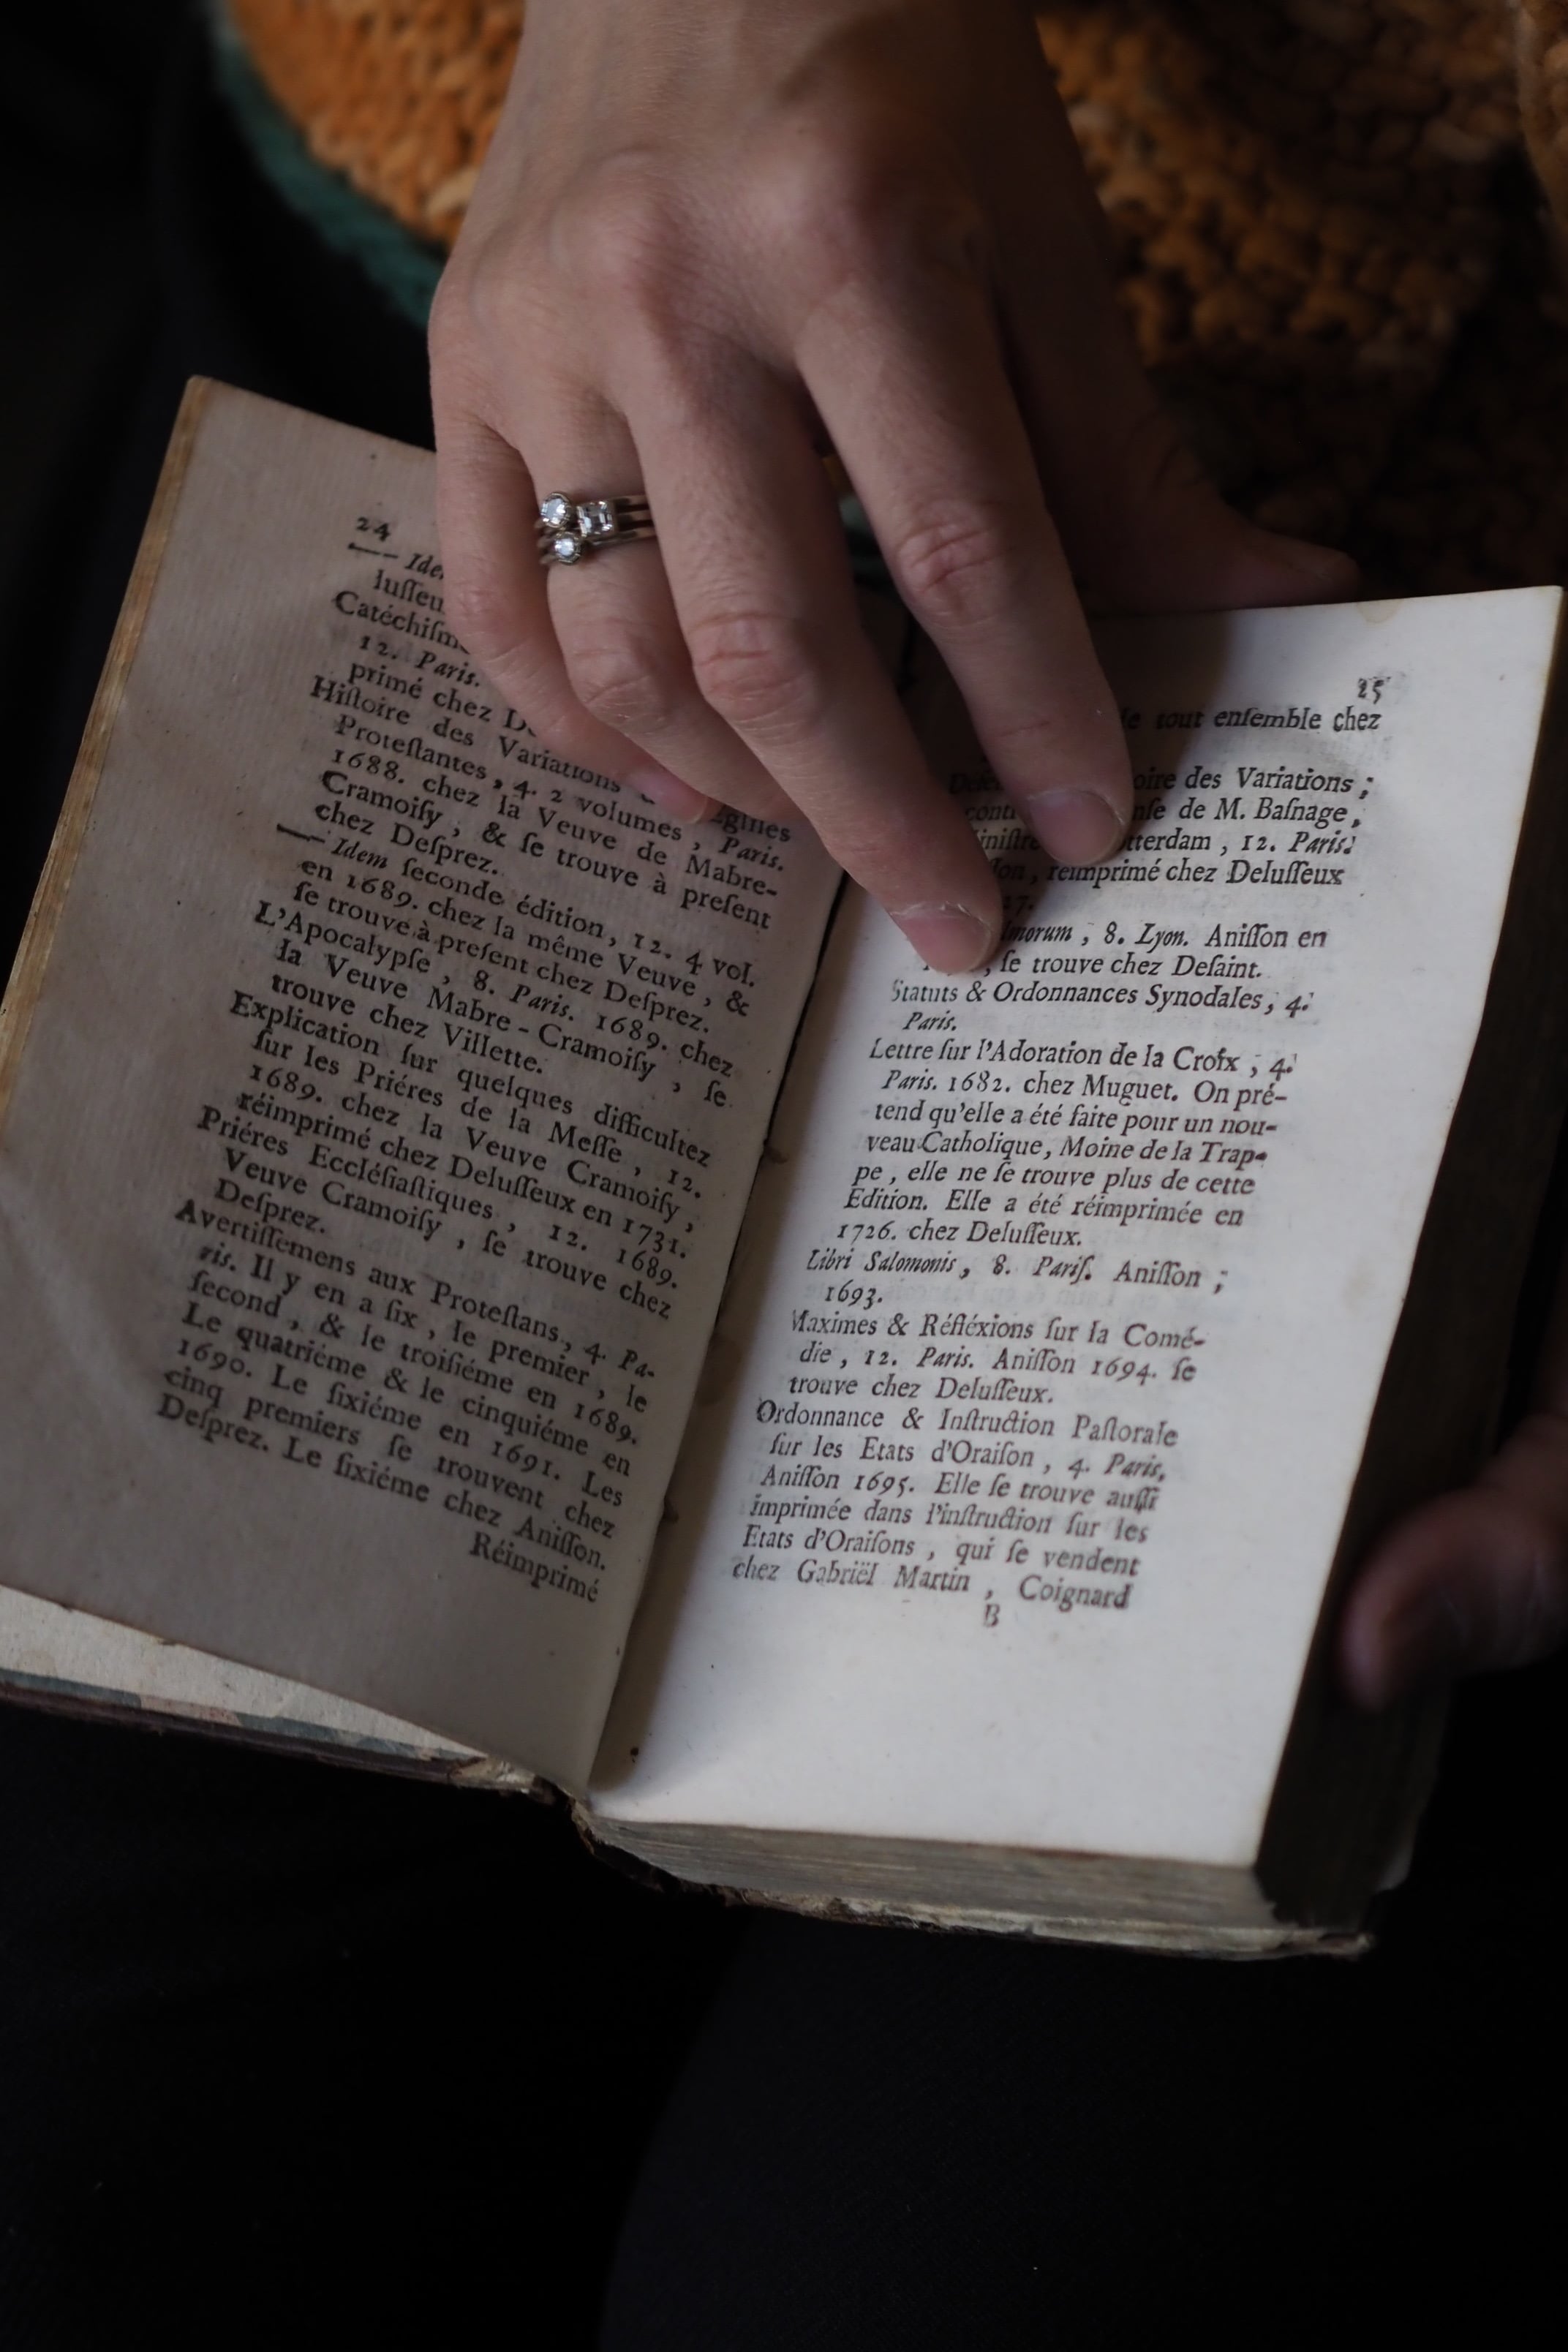 24
—— Ide
luſſeu
Catéchiſm
12. Paris.
primé chez D
Hiſtoire des Variations Egliſes
Proteſtantes, 4. 2 volumes, Paris.
1688. chez la Veuve de Mabre-
Cramoiſy, & ſe trouve à preſent
chez Deſprez.
—— Idem ſeconde édition, 12. 4 vol.
en 1689. chez la même Veuve, &
ſe trouve à preſent chez Deſprez.
L'Apocalypſe, 8. Paris. 1689. chez
la Veuve Mabre-Cramoiſy, ſe
trouve chez Villette.
Explication ſur quelques difficultez
ſur les Priéres de la Meſſe, 12.
1689. chez la Veuve Cramoiſy,
réimprimé chez Deluſſeux en 1731.
Priéres Eccléſiaſtiques, 12. 1689.
Veuve Cramoiſy, ſe trouve chez
Deſprez.
Avertiſſemens aux Proteſtans, 4. Pa-
ris. Il y en a ſix, le premier, le
ſecond, & le troiſiéme en 1689.
Le quatriéme & le cinquiéme en
1690. Le ſixiéme en 1691. Les
cinq premiers ſe trouvent chez
Deſprez. Le ſixiéme chez Aniſſon.
Réimprimé
25
tout enſemble chez
oire des Variations;
nſe de M. Baſnage,
tterdam, 12. Paris.
réimprimé chez Deluſſeux
17.
lmorum, 8. Lyon. Aniſſon en
ſe trouve chez Deſaint.
Statuts & Ordonnances Synodales, 4.
Paris.
Lettre ſur l'Adoration de la Croix, 4.
Paris. 1682. chez Muguet. On pré-
tend qu'elle a été faite pour un nou-
veau Catholique, Moine de la Trap-
pe, elle ne ſe trouve plus de cette
Edition. Elle a été réimprimée en
1726. chez Deluſſeux.
Libri Salomonis, 8. Pariſ. Aniſſon;
1693.
Maximes & Réfléxions ſur la Comé-
die, 12. Paris. Aniſſon 1694. ſe
trouve chez Deluſſeux.
Ordonnance & Inſtruction Paſtorale
ſur les Etats d'Oraiſon, 4. Paris,
Aniſſon 1695. Elle ſe trouve auſſi
imprimée dans l'inſtruction ſur les
Etats d'Oraiſons, qui ſe vendent
chez Gabriël Martin, Coignard
B